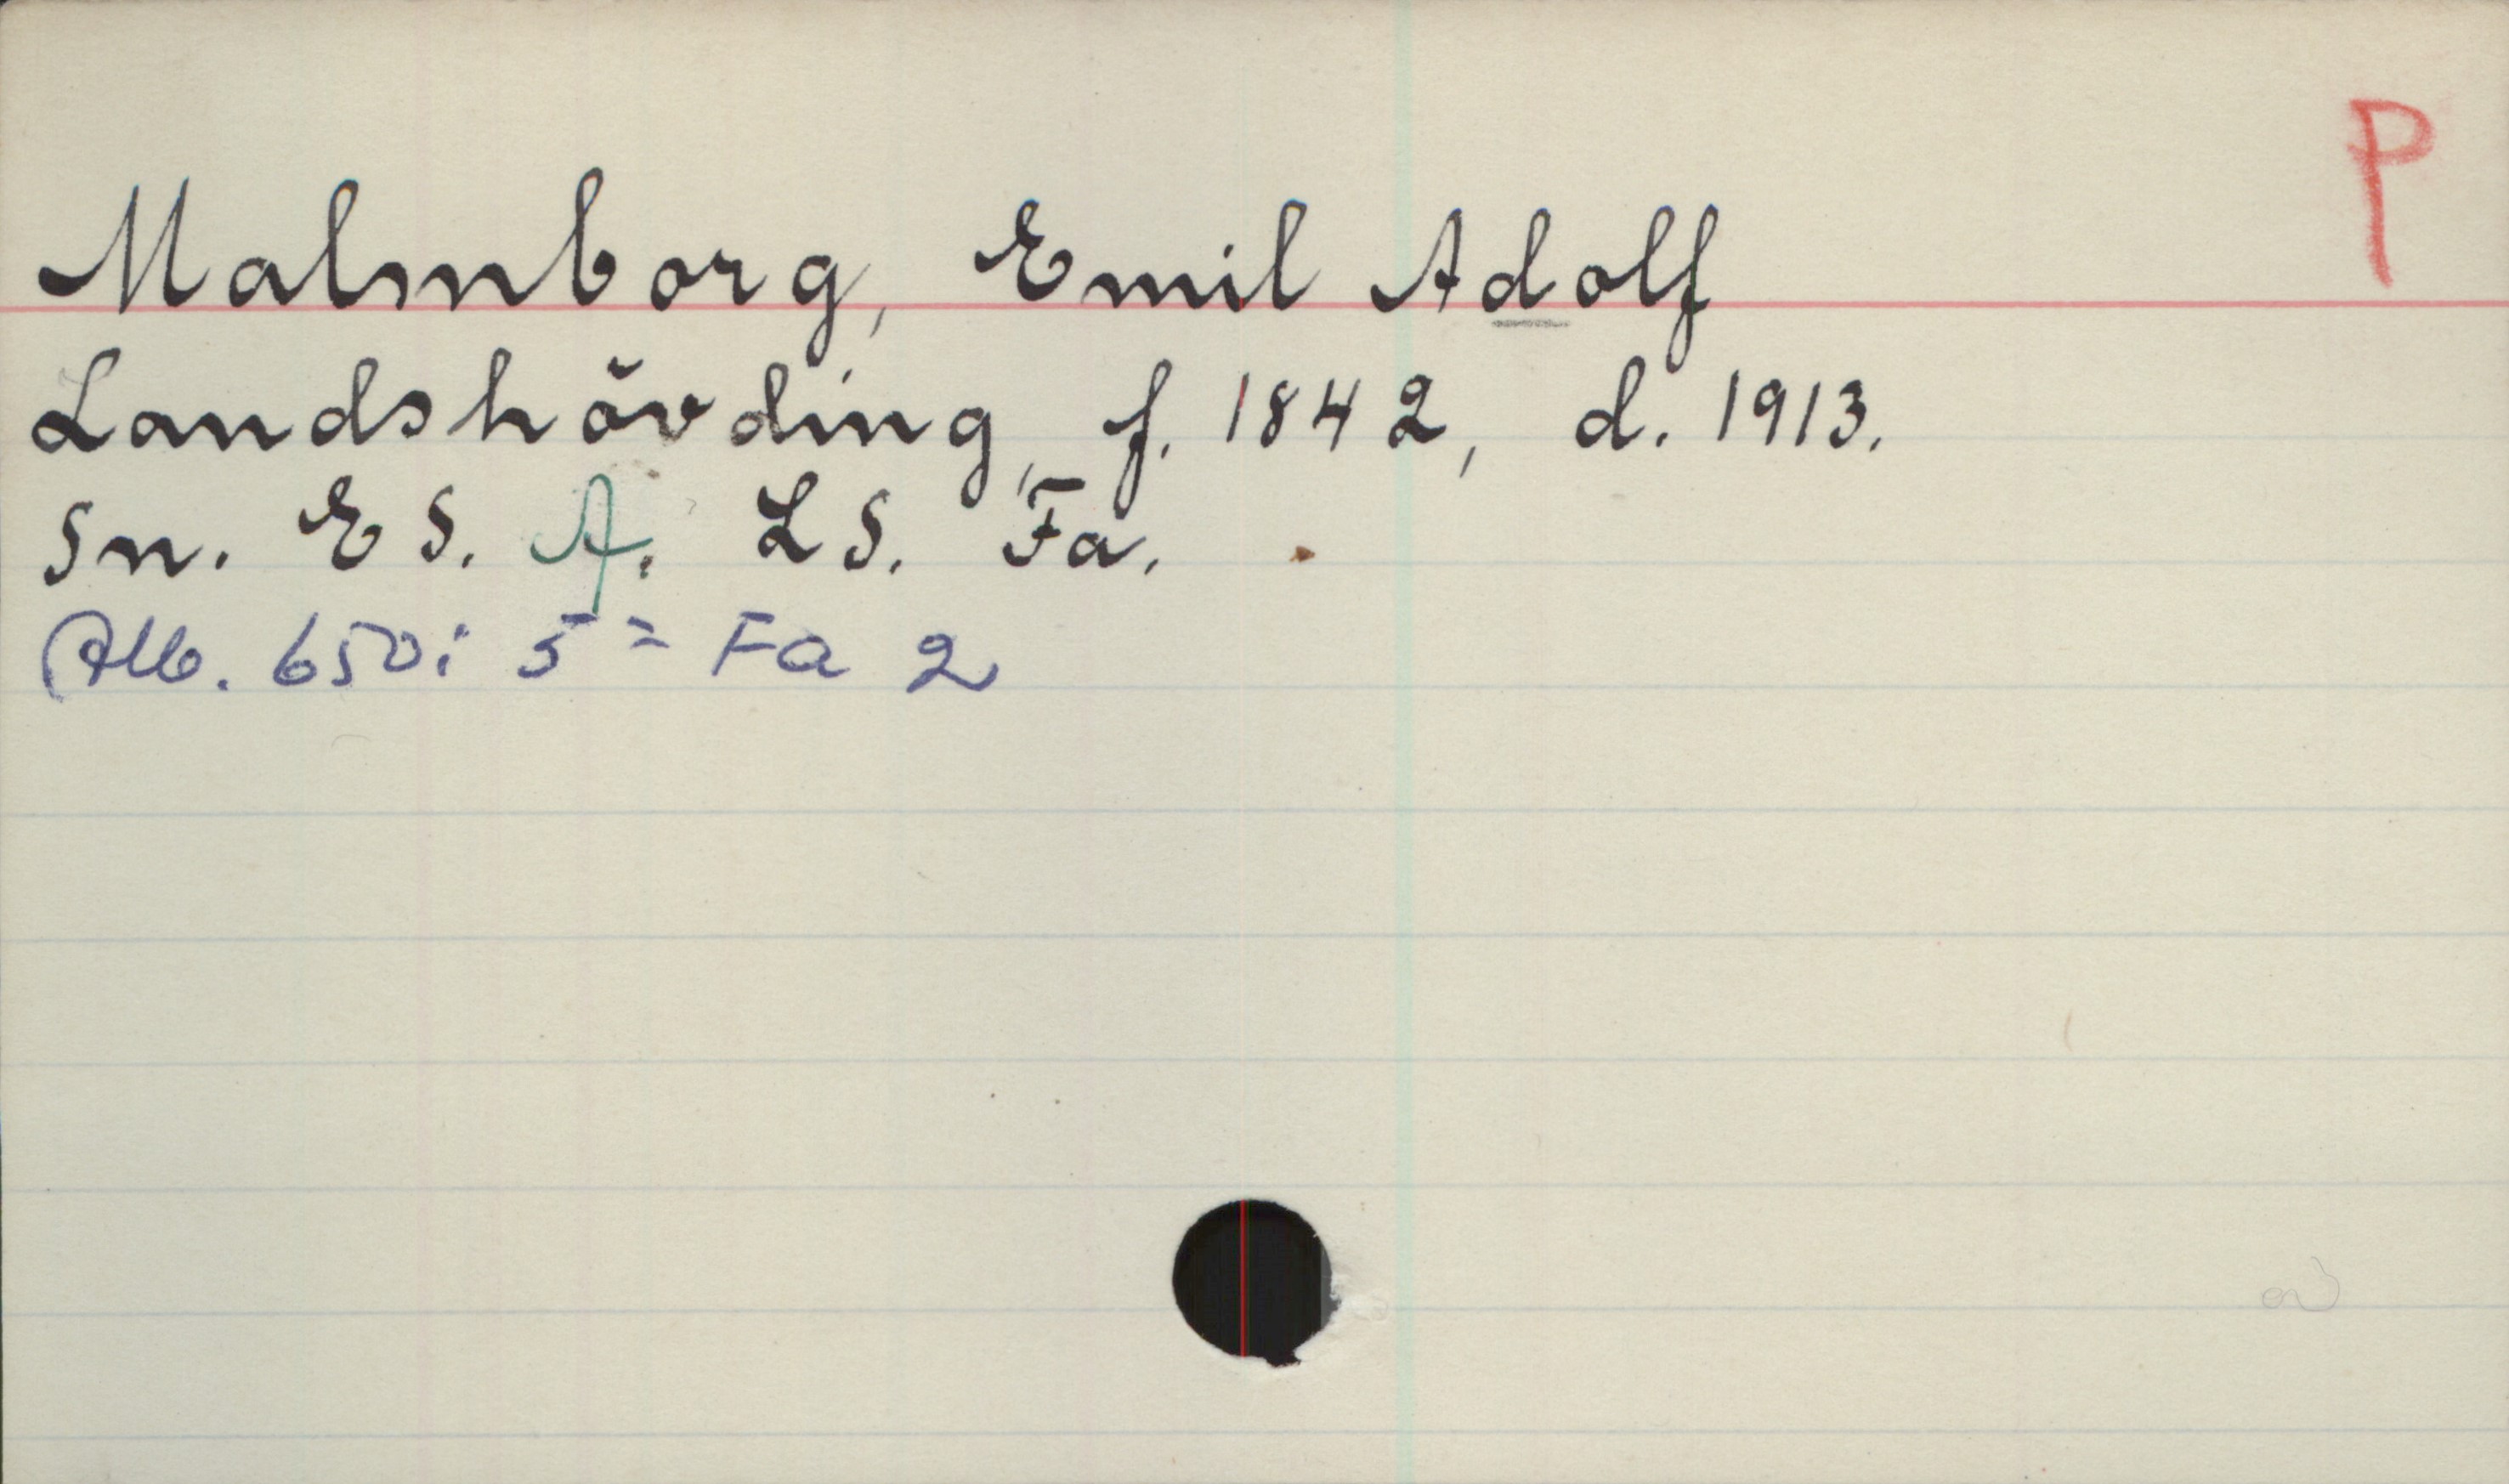 P
Malmborg, Emil Adolf
Landshövding, f. 1842, d. 1913.
Sn. ES. A. LS. Fa.
Alb. 650: 5 = Fa 2